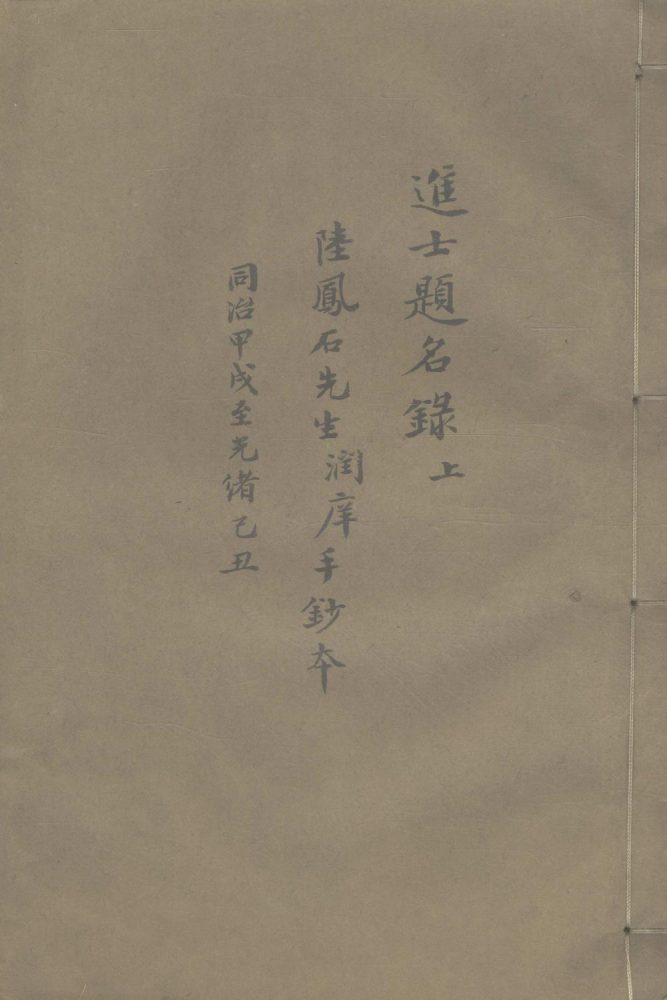 進士題名錄上
陸鳳石先生潤庠手鈔本
同治甲戌至光緒己丑